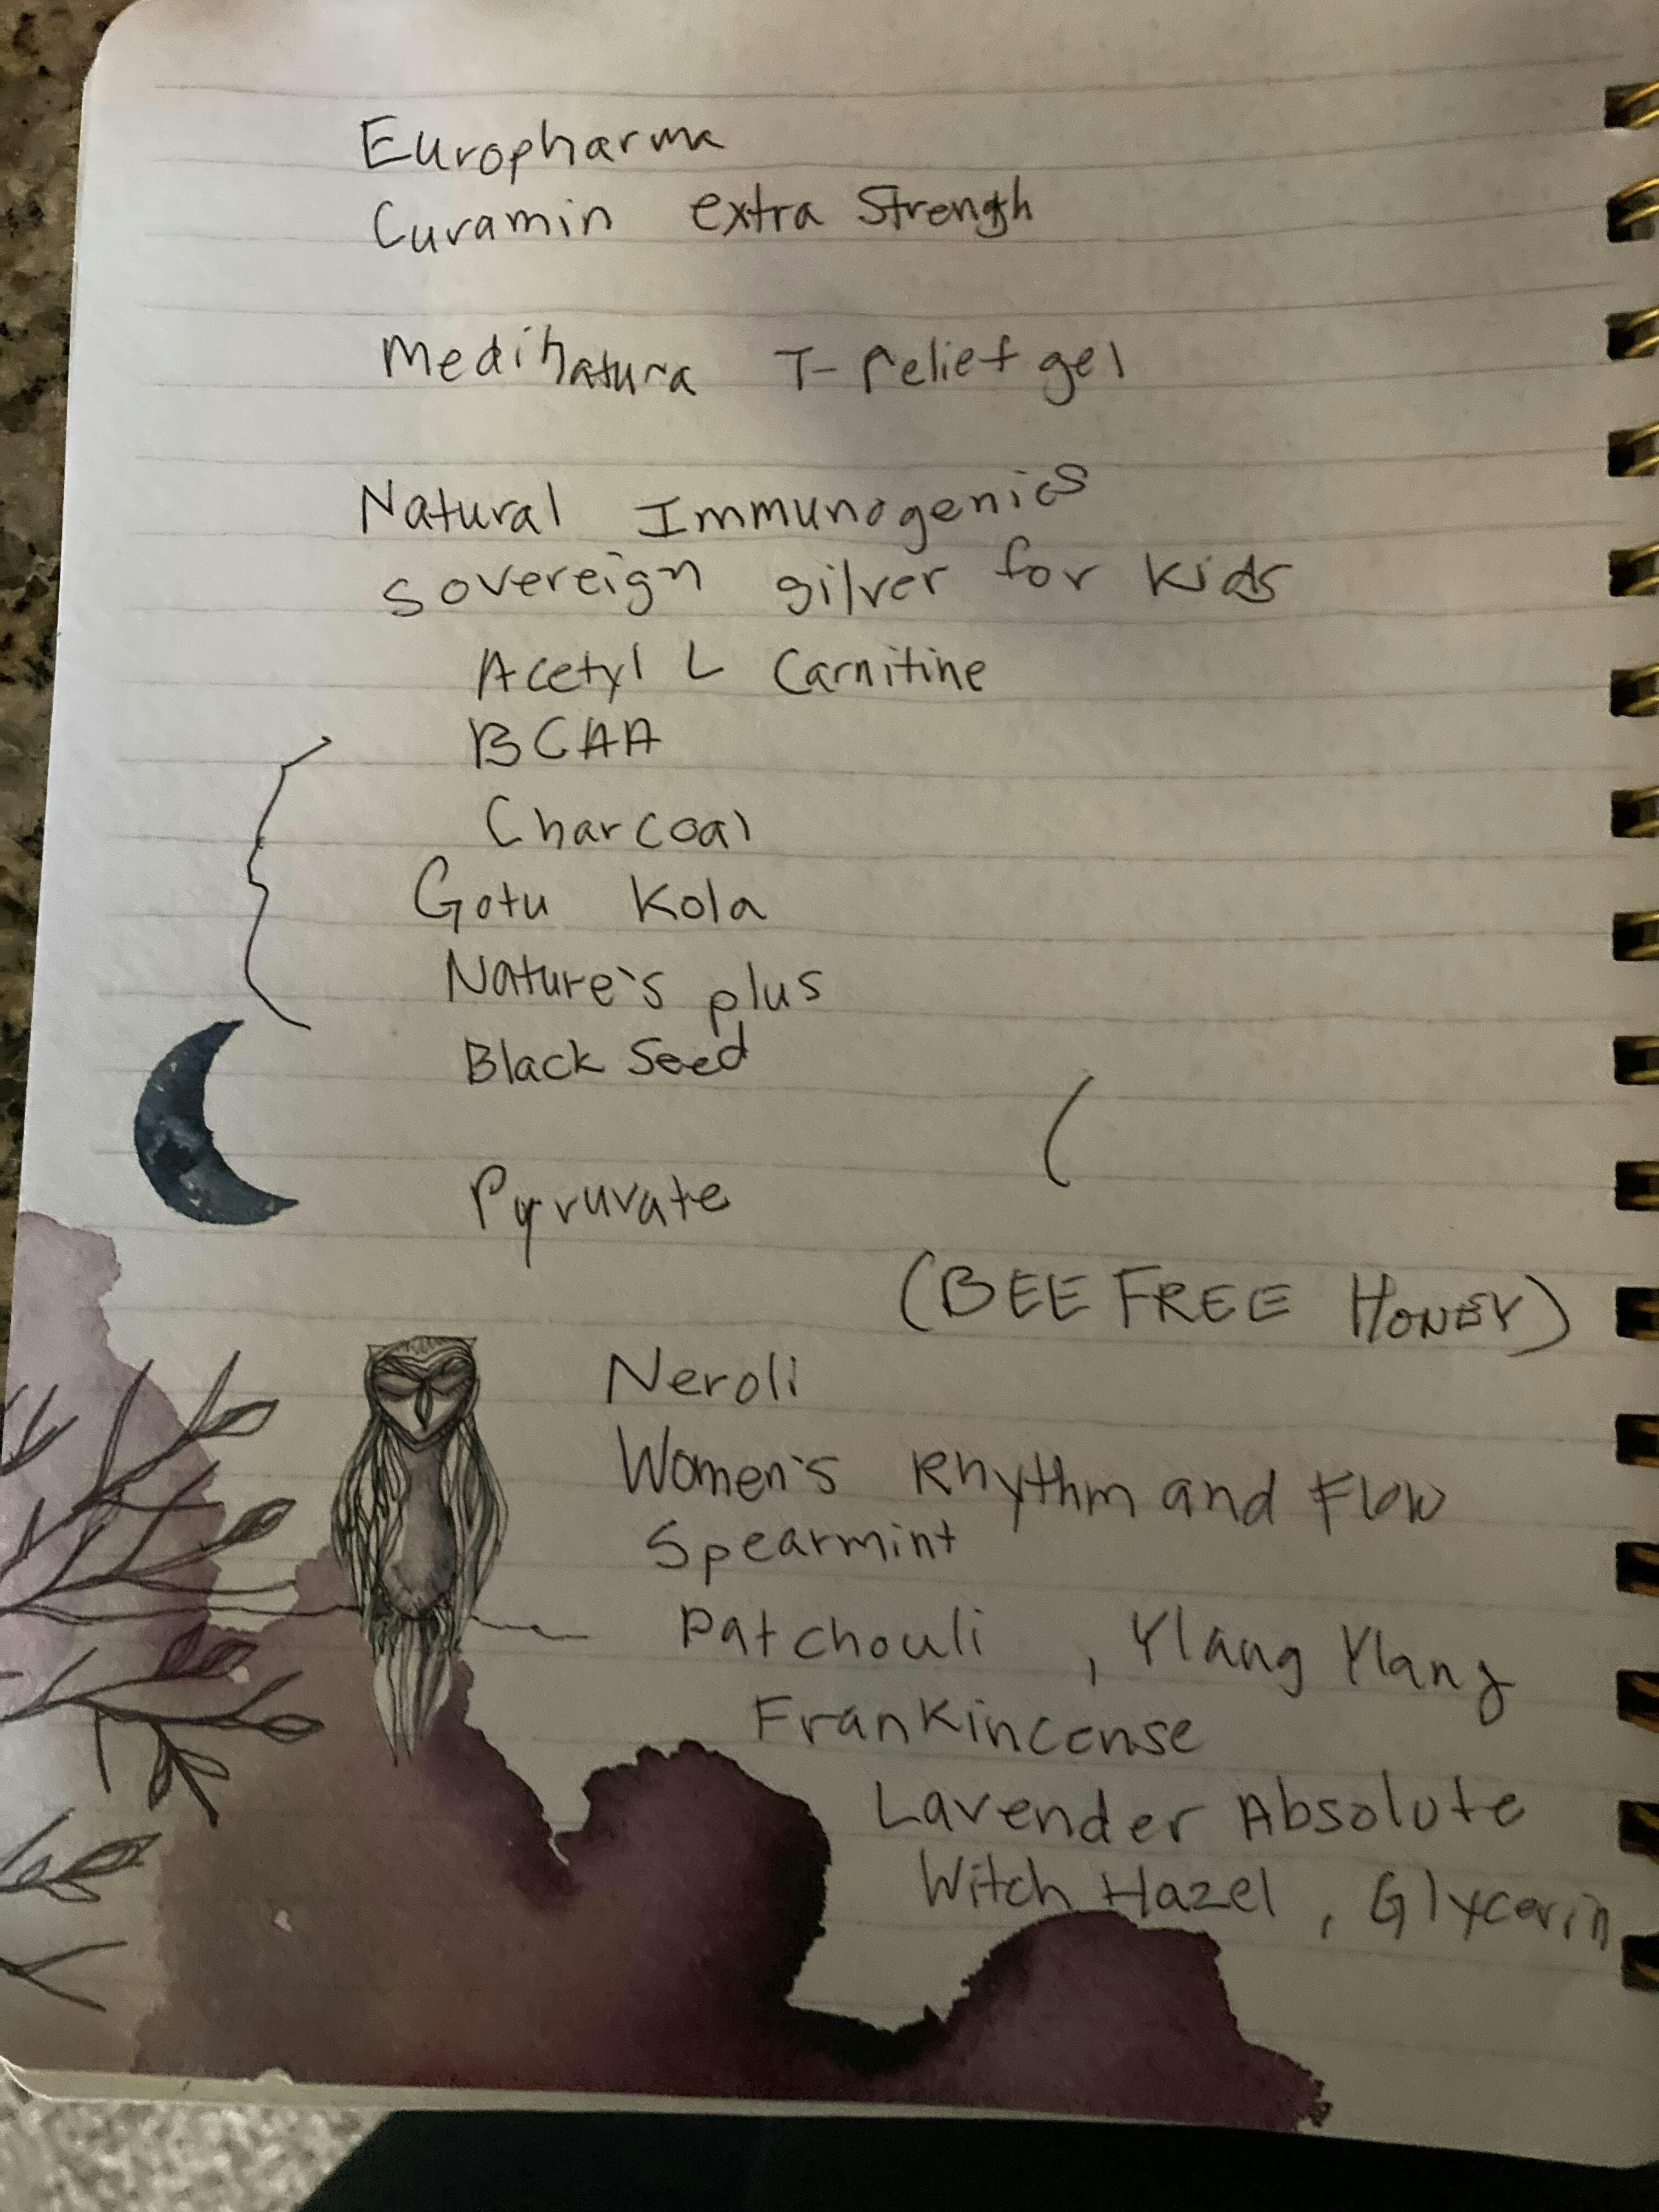 Europharma
Curamin extra Strength
Medinatura T-Relief gel
Natural Immunogenics
Sovereign Silver for Kids
Acetyl L Carnitine
BCAA
Charcoal
Gotu Kola
Nature's plus
Black Seed
Pyruvate
(BEE FREE HONEY)
Neroli
Women's Rhythm and Flow
Spearmint
Patchouli, Ylang Ylang
Frankincense
Lavender Absolute
Witch Hazel, Glycerin